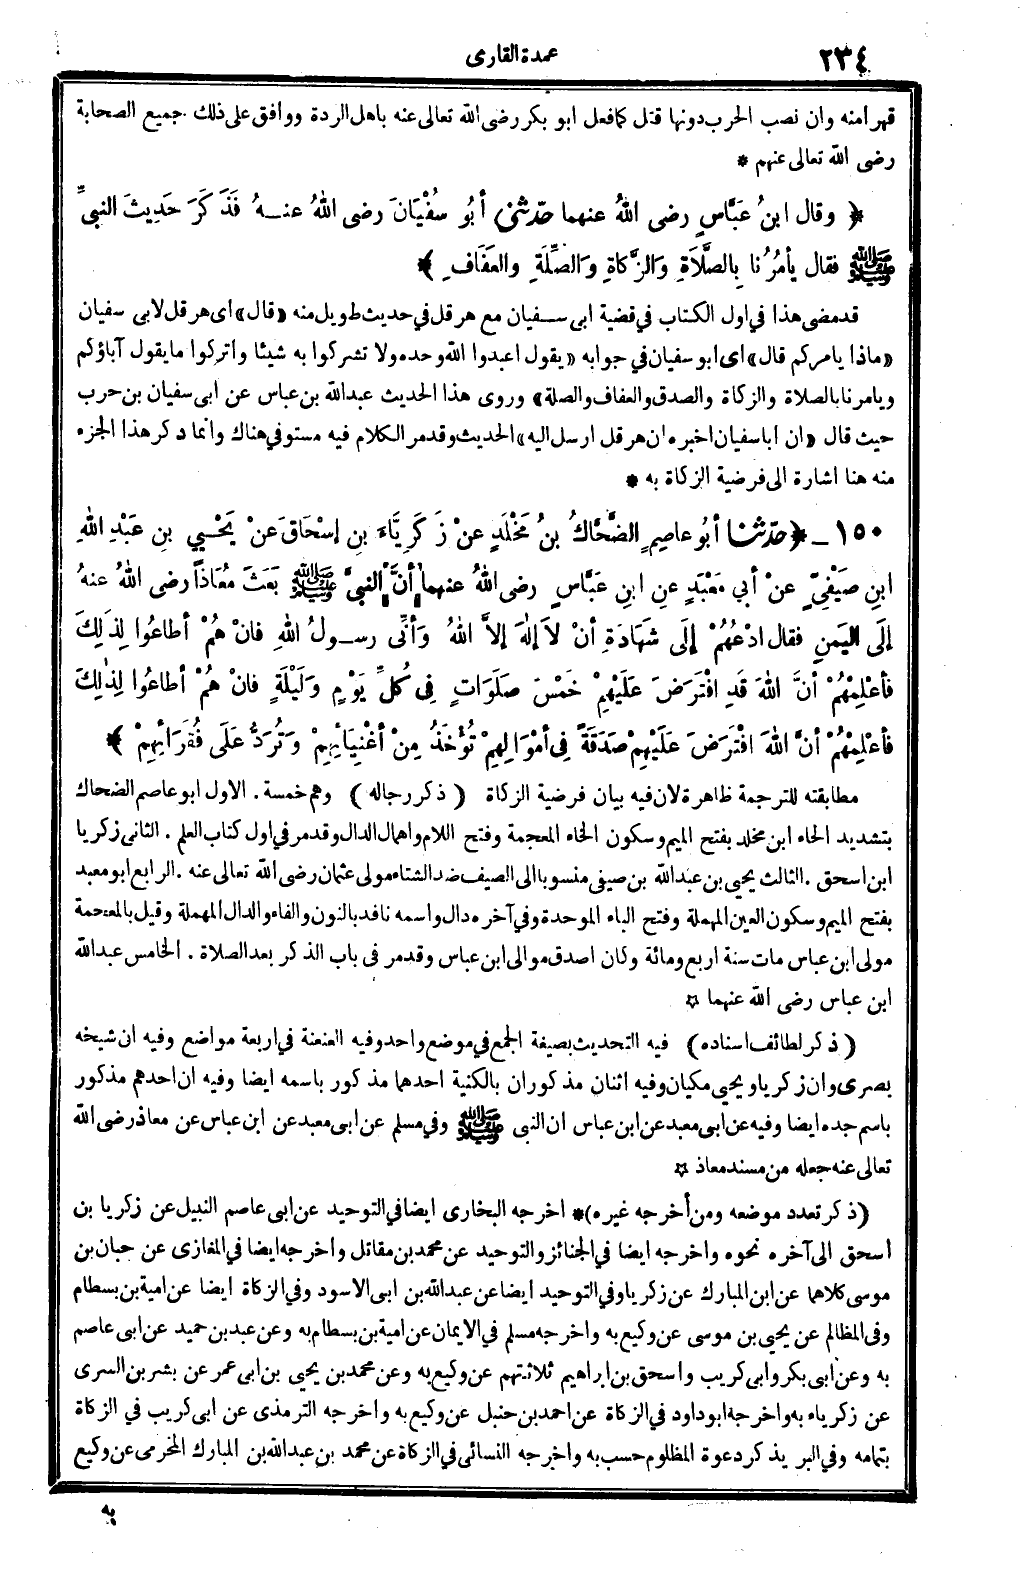 ٢٣٤
عمدة القارى
قهرا منه وان نصب الحرب دونها قتل كما فعل ابو بكر رضى الله تعالى عنه باهل الردة ووافق على ذلك جميع الصحابة
رضى الله تعالى عنهم *
﴿ وقال ابنُ عَبَّاسٍ رضى اللهُ عنهما حدّثنى أبُو سُفْيَانَ رضى اللهُ عنهُ فَذَكَرَ حَدِيثَ النبىِّ
ﷺ فقال يأمُرُنا بِالصَّلاَةِ وَالزَّكاةِ وَالصِّلَةِ والعَفَافِ ﴾
قد مضى هذا فى اول الكتاب فى قضية ابى سفيان مع هرقل فى حديث طويل منه «قال» اى هرقل لابى سفيان
«ماذا يامركم قال» اى ابو سفيان فى جوابه «يقول اعبدوا الله وحده ولا تشركوا به شيئا واتركوا ما يقول آباؤكم
ويامرنا بالصلاة والزكاة والصدق والعفاف والصلة» وروى هذا الحديث عبدالله بن عباس عن ابى سفيان بن حرب
حيث قال «ان اباسفيان اخبره ان هرقل ارسل اليه» الحديث وقد مر الكلام فيه مستوفى هناك وانما ذكر هذا الجزء
منه هنا اشارة الى فرضية الزكاة به *
١٥٠ - ﴿ حدّثنا أبُو عاصِمٍ الضَّحَّاكُ بنُ مَخْلَدٍ عنْ زَكَرِيَّاءَ بنِ إسْحَاقَ عَنْ يَحْيي بنِ عَبْدِ اللهِ
ابنِ صَيْفِىٍّ عنْ أبي مَعْبَدٍ عنِ ابنِ عَبَّاسٍ رضى اللهُ عنهما أنَّ النبىَّ ﷺ بَعَثَ مُعَاذاً رضى اللهُ عنهُ
إلَى اليَمنِ فقال ادْعُهُمْ إلَى شَهَادَةِ أنْ لاَ إلٰهَ إلاَّ اللهُ وَأنِّى رسولُ اللهِ فانْ هُمْ أطاعُوا لِذَلِكَ
فأعْلِمْهُمْ أنَّ اللهَ قَدِ افْتَرَضَ عَلَيْهِمْ خَمْسَ صَلَوَاتٍ فِى كُلِّ يَوْمٍ وَلَيْلَةٍ فانْ هُمْ أطاعُوا لِذٰلِكَ
فأعْلِمْهُمْ أنَّ اللهَ افْتَرَضَ عَلَيْهِمْ صَدَقَةً فِى أمْوَالِهِمْ تُؤْخَذُ مِنْ أغْنِيَائِهِمْ وَتُرَدُّ عَلَى فُقَرَائِهِمْ ﴾
مطابقته للترجمة ظاهرة لان فيه بيان فرضية الزكاة ( ذكر رجاله ) وهم خمسة . الاول ابو عاصم الضحاك
بتشديد الحاء ابن مخلد بفتح الميم وسكون الخاء المعجمة وفتح اللام واهمال الدال وقد مر فى اول كتاب العلم . الثانى زكريا
ابن اسحق . الثالث يحيي بن عبدالله بن صيفى منسوبا الى الصيف ضد الشتاء مولى عثمان رضى الله تعالى عنه . الرابع ابو معبد
بفتح الميم وسكون العين المهملة وفتح الباء الموحدة وفى آخره دال واسمه نافد بالنون والفاء والدال المهملة وقيل بالمعجمة
مولى ابن عباس مات سنة اربع ومائة وكان اصدق موالى ابن عباس وقد مر فى باب الذكر بعد الصلاة . الخامس عبدالله
ابن عباس رضى الله عنهما ☆
( ذكر لطائف اسناده ) فيه التحديث بصيغة الجمع فى موضع واحد وفيه العنعنة فى اربعة مواضع وفيه ان شيخه
بصرى وان زكريا ويحيي مكيان وفيه اثنان مذكوران بالكنية احدهما مذكور باسمه ايضا وفيه ان احدهم مذكور
باسم جده ايضا وفيه عن ابى معبد عن ابن عباس ان النبى ﷺ وفى مسلم عن ابى معبد عن ابن عباس عن معاذ رضى الله
تعالى عنه جعله من مسند معاذ ☆
( ذكر تعدد موضعه ومن أخرجه غيره )* اخرجه البخارى ايضا فى التوحيد عن ابى عاصم النبيل عن زكريا بن
اسحق الى آخره نحوه واخرجه ايضا فى الجنائز والتوحيد عن محمد بن مقاتل واخرجه ايضا فى المغازى عن حبان بن
موسى كلاهما عن ابن المبارك عن زكريا وفى التوحيد ايضا عن عبدالله بن ابى الاسود وفى الزكاة ايضا عن امية بن بسطام
وفى المظالم عن يحيي بن موسى عن وكيع به واخرجه مسلم فى الايمان عن امية بن بسطام به وعن عبد بن حميد عن ابى عاصم
به وعن ابى بكر وابى كريب واسحق بن ابراهيم ثلاثتهم عن وكيع به وعن محمد بن يحيي بن ابى عمر عن بشر بن السرى
عن زكرياء به واخرجه ابو داود فى الزكاة عن احمد بن حنبل عن وكيع به واخرجه الترمذى عن ابى كريب فى الزكاة
بتمامه وفى البر يذكر دعوة المظلوم حسب به واخرجه النسائى فى الزكاة عن محمد بن عبدالله بن المبارك المخرمى عن وكيع
به